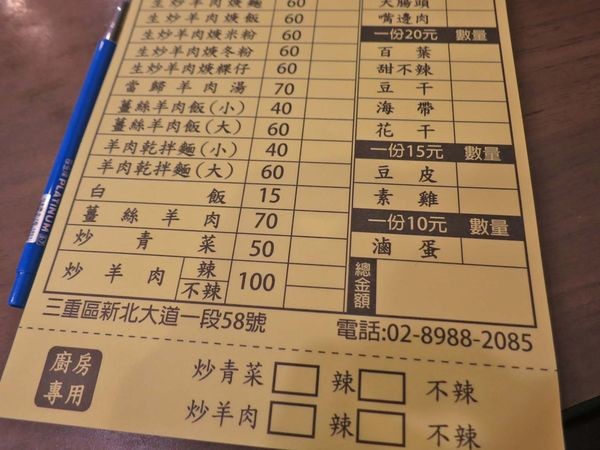 生炒羊肉焿麵 60
生炒羊肉焿飯 60
生炒羊肉焿米粉 60
生炒羊肉焿冬粉 60
生炒羊肉焿粿仔 60
當歸羊肉湯 70
薑絲羊肉飯(小) 40
薑絲羊肉飯(大) 60
羊肉乾拌麵(小) 40
羊肉乾拌麵(大) 60
白飯 15
薑絲羊肉 70
炒青菜 50
炒羊肉 辣 不辣 100
大腸頭
嘴邊肉
一份20元 數量
百葉
甜不辣
豆干
海帶
花干
一份15元 數量
豆皮
素雞
一份10元 數量
滷蛋
總金額
三重區新北大道一段58號 電話:02-8988-2085
廚房專用
炒青菜 辣 不辣
炒羊肉 辣 不辣
PLATINUM